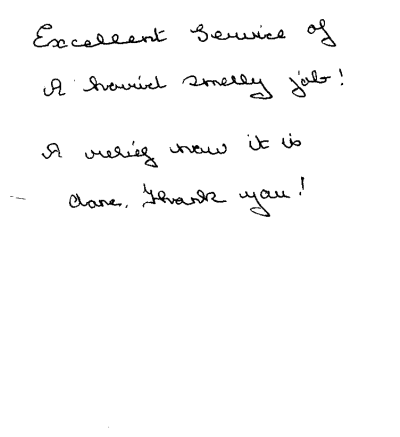 Excellent Service of
A horrid smelly job!
A relief now it is
done. Thank you!